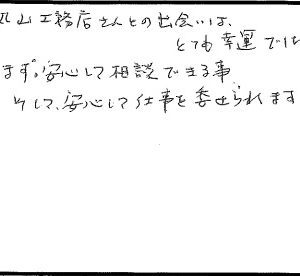 丸山工務店さんとの出会いは、
とても幸運でした
ます。安心して相談できる事
そして、安心して仕事を委せられます